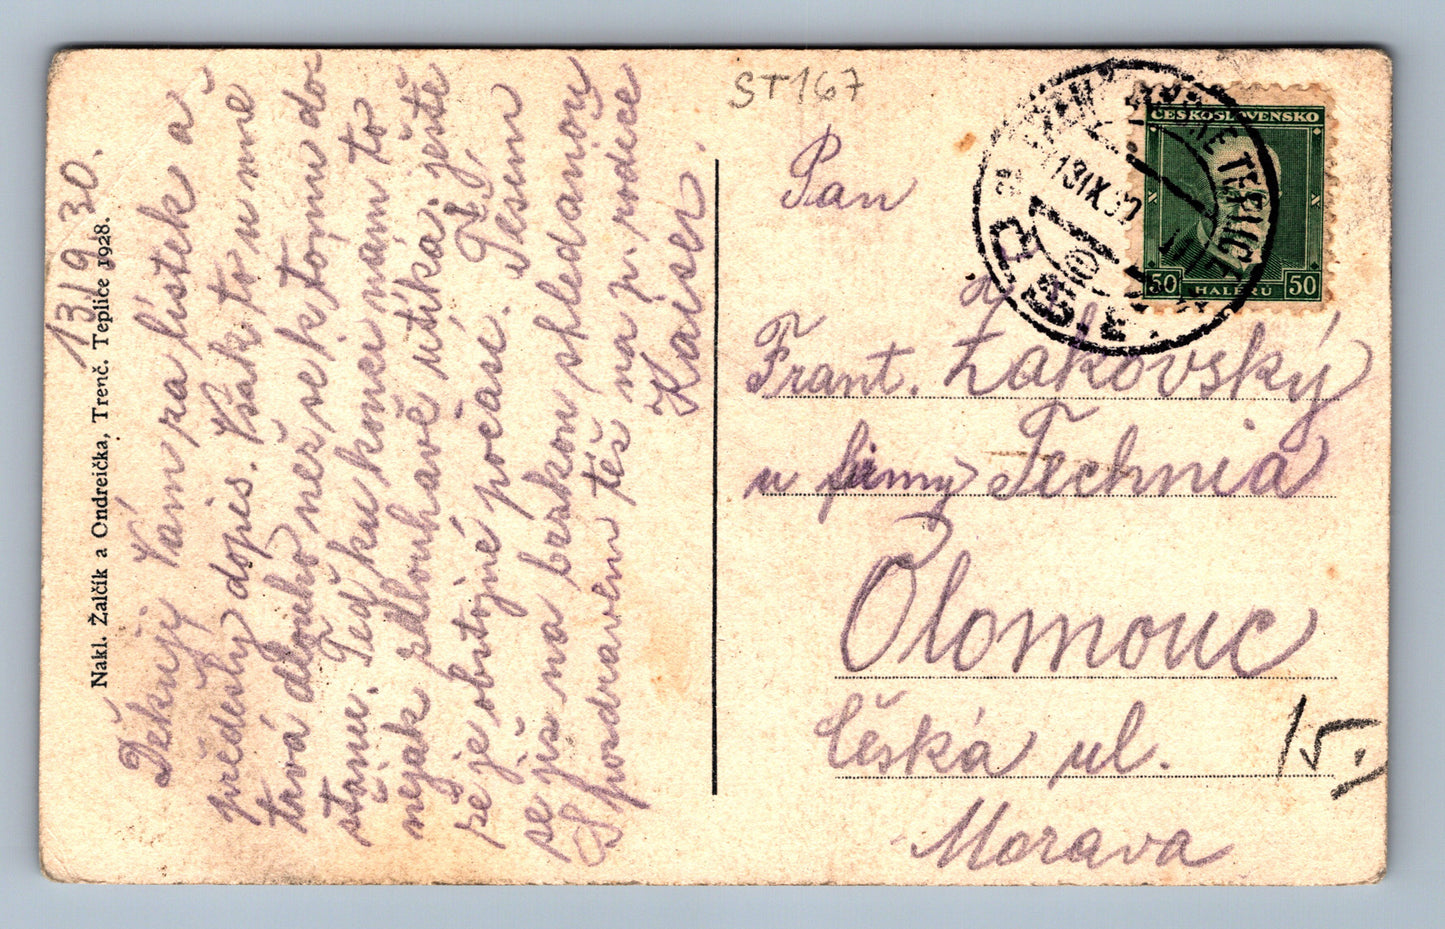 13/9 30.
Děkuji Vám za lístek a
předešlý dopis. Však to u mne
trvá dlouho než se k tomu do
stanu. Teď ku konci nám to
nějak pdlouhavě utíká, ještě
že je obstojné počasí. Těším
se již na brzkou shledanou
S pozdravem též na p. rodiče
Kaiser.
Nakl. Žalčík a Ondreička, Trenč. Teplice 1928.
ST167
ČESKOSLOVENSKO
50 HALÉŘŮ 50
TEPLICE
13.IX.30
Pan
Frant. Žákovský
u firmy Technia
Olomouc
Česká ul. 15.
Morava